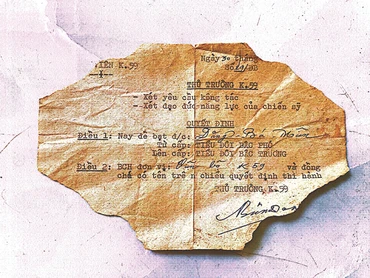 IÊN K.59
Ngày 30 tháng
Số
THỦ TRƯỞNG K.59
- Xét yêu cầu kông tác
- Xét đạo đức năng lực của chiến sỹ
QUYẾT ĐỊNH
Điều 1: Nay đề bạt đ/c:
Từ cấp: TIỂU ĐỘI BẬC PHÓ
Lên cấp: TIỂU ĐỘI BẬC TRƯỞNG
Điều 2: BCH đơn vị: K 59 và đồng
chí có tên trên chiếu quyết định thi hành
THỦ TRƯỞNG K.59